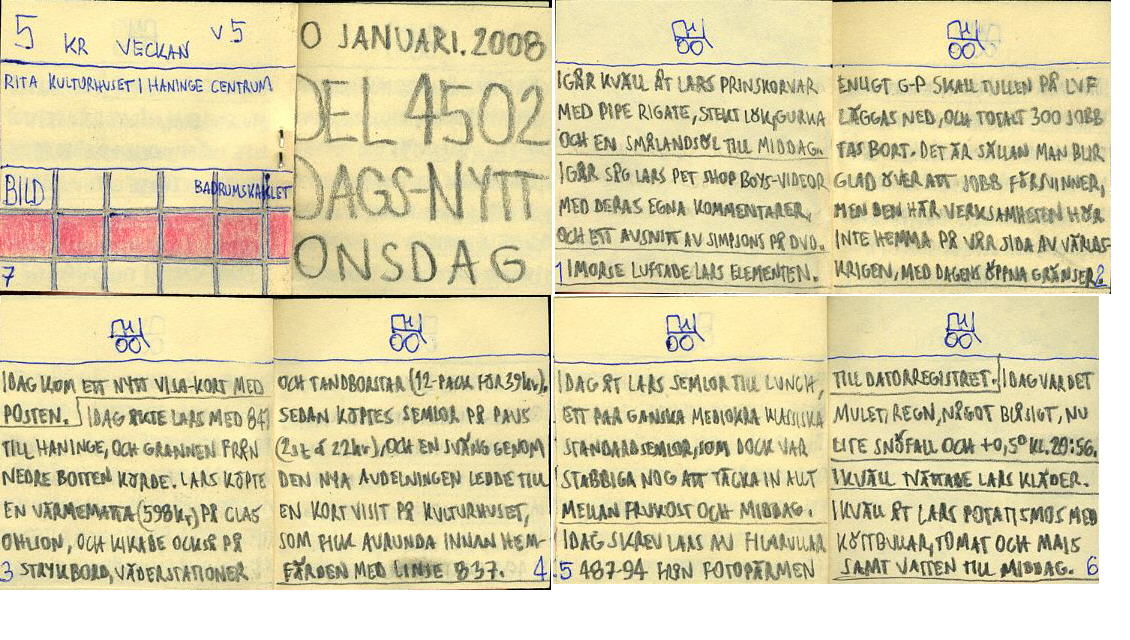 5 KR VECKAN V5
RITA KULTURHUSET I HANINGE CENTRUM
BILD BADRUMSKAKLET
7
0 JANUARI. 2008
DEL 4502
DAGS-NYTT
ONSDAG
IGÅR KVÄLL ÅT LARS PRINSKORVAR
MED PIPE RIGATE, STEKT LÖK, GURKA
OCH EN SMÅLANDSÖL TILL MIDDAG.
IGÅR SÅG LARS PET SHOP BOYS-VIDEOR
MED DERAS EGNA KOMMENTARER,
OCH ETT AVSNITT AV SIMPSONS PÅ DVD.
1 IMORSE LUFTADE LARS ELEMENTEN.
ENLIGT G-P SKALL TULLEN PÅ LVF
LÄGGAS NED, OCH TOTALT 300 JOBB
TAS BORT. DET ÄR SÄLLAN MAN BLIR
GLAD ÖVER ATT JOBB FÖRSVINNER,
MEN DEN HÄR VERKSAMHETEN HÖR
INTE HEMMA PÅ VÅR SIDA AV VÄRLDS-
KRIGEN, MED DAGENS ÖPPNA GRÄNSER. 2
IDAG KOM ETT NYTT VISA-KORT MED
POSTEN. IDAG ÅKTE LARS MED 847
TILL HANINGE, OCH GRANNEN FRÅN
NEDRE BOTTEN KÖRDE. LARS KÖPTE
EN VÄRMEMATTA (598 kr) PÅ CLAS
OHLSON, OCH KIKADE OCKSÅ PÅ
3 STRYKBORD, VÄDERSTATIONER
OCH TANDBORSTAR (12-PACK FÖR 39 kr).
SEDAN KÖPTES SEMLOR PÅ PAUS
(2 st á 22 kr), OCH EN SVÄNG GENOM
DEN NYA AVDELNINGEN LEDDE TILL
EN KORT VISIT PÅ KULTURHUSET,
SOM FICK AVRUNDA INNAN HEM-
FÄRDEN MED LINJE 837. 4
IDAG ÅT LARS SEMLOR TILL LUNCH,
ETT PAR GANSKA MEDIOKRA KLASSISKA
STANDARDSEMLOR, SOM DOCK VAR
STABBIGA NOG ATT TÄCKA IN ALLT
MELLAN FRUKOST OCH MIDDAG.
IDAG SKREV LARS AV FILMRULLAR
5 487-94 FRÅN FOTOPÄRMEN
TILL DATORREGISTRET. IDAG VAR DET
MULET, REGN, NÅGOT BLÅSIGT, NU
LITE SNÖFALL OCH +0,5° KL. 20:56.
IKVÄLL TVÄTTADE LARS KLÄDER.
IKVÄLL ÅT LARS POTATISMOS MED
KÖTTBULLAR, TOMAT OCH MAJS
SAMT VATTEN TILL MIDDAG. 6